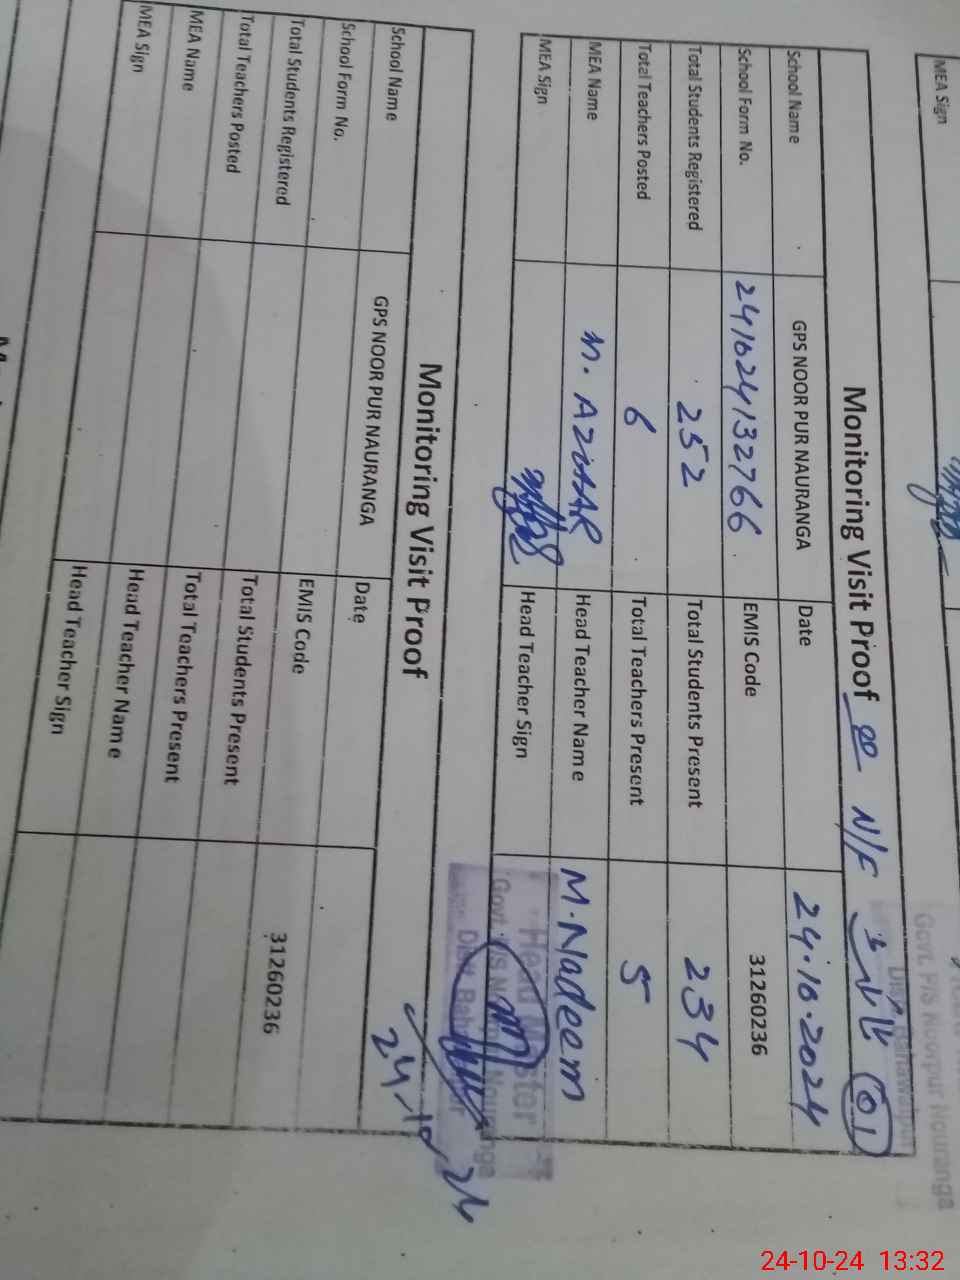 MEA Sign
Govt. P/S Noorpur Nouranga
Monitoring Visit Proof N/F 01
School Name GPS NOOR PUR NAURANGA Date 24.10.2024
School Form No. 241024132766 EMIS Code 31260236
Total Students Registered 252 Total Students Present 234
Total Teachers Posted 6 Total Teachers Present 5
MEA Name M. AZHAR Head Teacher Name M.Nadeem
MEA Sign Head Teacher Sign
Head Master
24-10-24
Monitoring Visit Proof
School Name GPS NOOR PUR NAURANGA Date
School Form No. EMIS Code 31260236
Total Students Registered Total Students Present
Total Teachers Posted Total Teachers Present
MEA Name Head Teacher Name
MEA Sign Head Teacher Sign
24-10-24 13:32